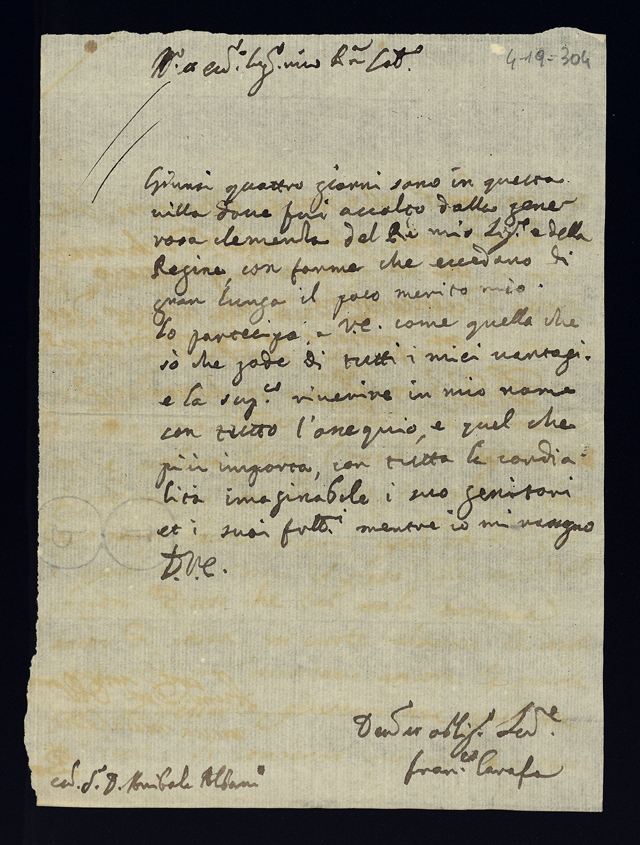 4-19-304
Giunsi quattro giorni sono in questa
villa dove fui accolto dalla gene
rosa clemenza del Rè mio Sig.e e della
Regina, con forme che eccedano di
gran lunga il poco merito mio.
Lo partecipo a V.E. come quella che
sò che gode di tutti i miei vantagi.
e la sup.co riverire in mio nome
con tutto l'ossequio, e quel che
più importa, con tutta la cordia
lità imaginabile i suo genitori
et i suoi frtlli mentre io mi rasegno
D.V.E.
Fran.co Carafa
D. Anibale Albani